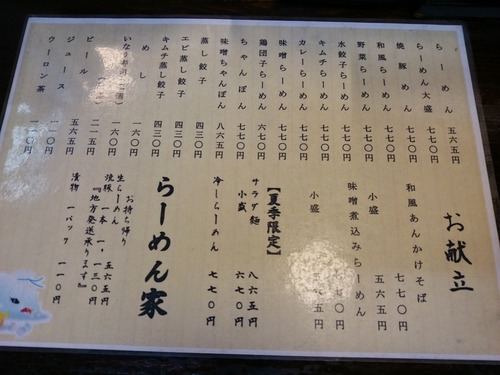 お献立
らーめん 五六五円
らーめん大盛 七七〇円
焼豚めん 七七〇円
和風らーめん 七七〇円
野菜らーめん 七七〇円
水餃子らーめん 七七〇円
キムチらーめん 七七〇円
カレーらーめん 七七〇円
味噌らーめん 七七〇円
鶏団子らーめん 六七〇円
ちゃんぽん 七七〇円
味噌ちゃんぽん 八六五円
蒸し餃子 四三〇円
エビ蒸し餃子 四三〇円
キムチ蒸し餃子 四三〇円
めし 一六〇円
いなり寿司 一六〇円
ビール 五六五円
ジュース
ウーロン茶
和風あんかけそば 七七〇円
小盛 五六五円
味噌煮込みらーめん
小盛
【夏季限定】
サラダ麺 八六五円
小盛 六七〇円
冷しらーめん 七七〇円
らーめん家
お持ち帰り
生らーめん
焼豚 一本 一、一三〇円
『地方発送承ります』
漬物 一パック 一一〇円